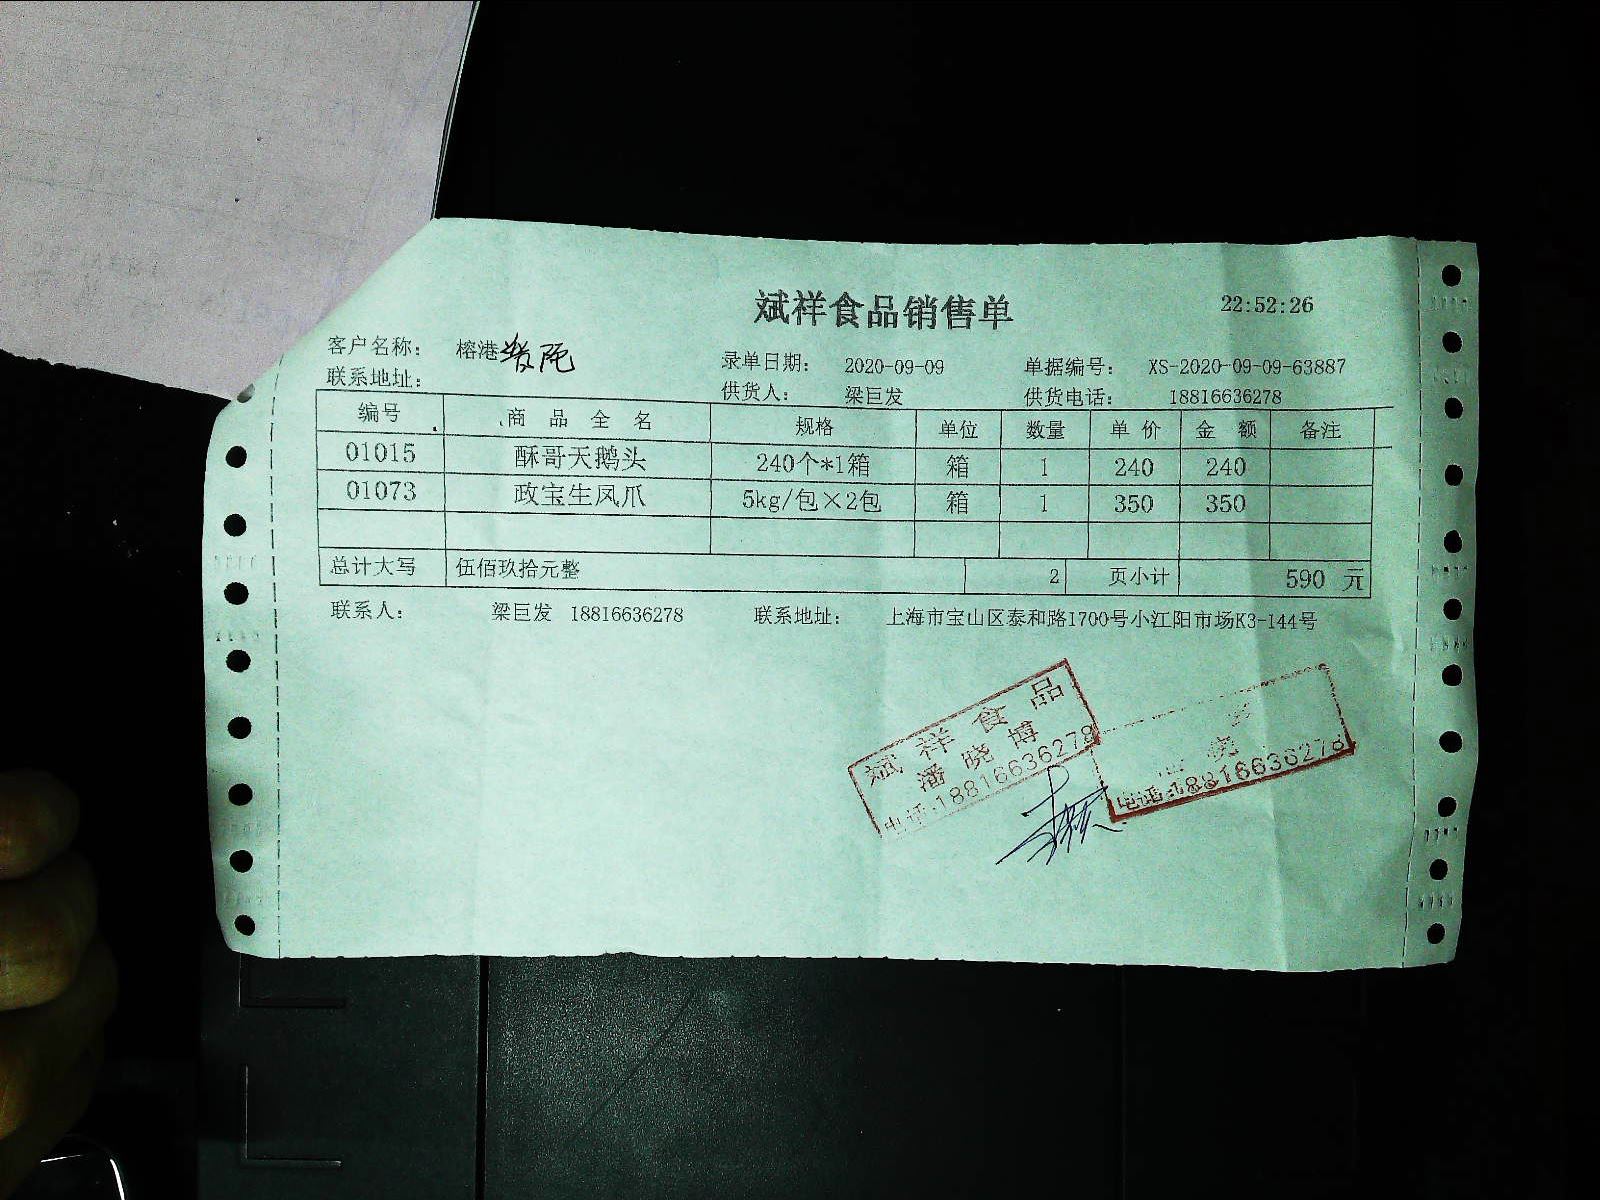 斌祥食品销售单 22:52:26
客户名称： 榕港
录单日期： 2020-09-09 单据编号： XS-2020-09-09-63887
联系地址：
供货人： 梁巨发 供货电话： 18816636278
编号 商品全名 规格 单位 数量 单价 金额 备注
01015 酥哥天鹅头 240个*1箱 箱 1 240 240
01073 政宝生凤爪 5kg/包×2包 箱 1 350 350
总计大写 伍佰玖拾元整 2 页小计 590 元
联系人： 梁巨发 18816636278 联系地址： 上海市宝山区泰和路1700号小江阳市场K3-144号
斌祥食品
潘晓博
电话:18816636278
晓
电话:18816636278